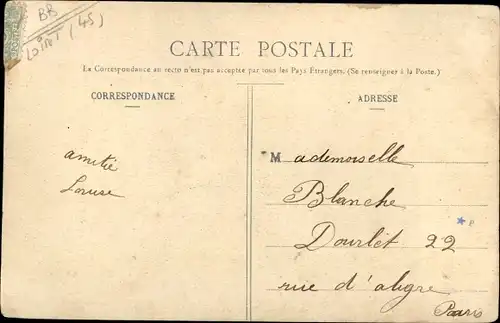 BB
Loiret (45)
CARTE POSTALE
La Correspondance au recto n'est pas acceptée par tous les Pays Étrangers. (Se renseigner à la Poste.)
CORRESPONDANCE
ADRESSE
amitié
Louise
Mademoiselle
Blanche
Dourlet 22
rue d'aligre
Paris